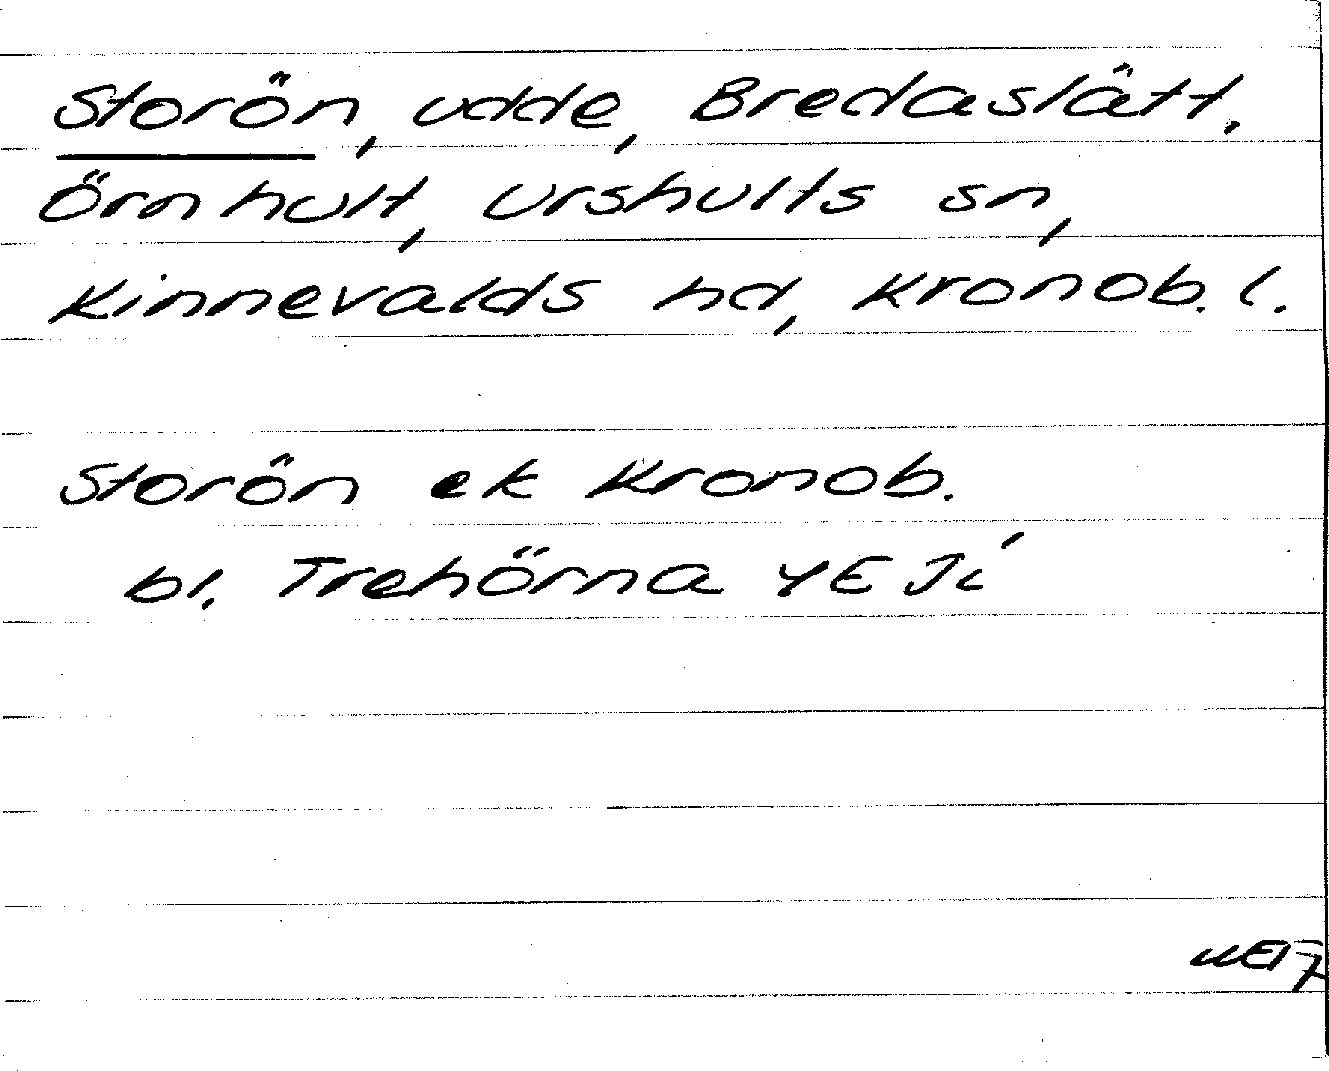 Storön, udde, Bredaslätt,
Örnhult, Urshults sn,
Kinnevalds hd, Kronob. l.
Storön ek Kronob.
bl. Trehörna 4E Jí